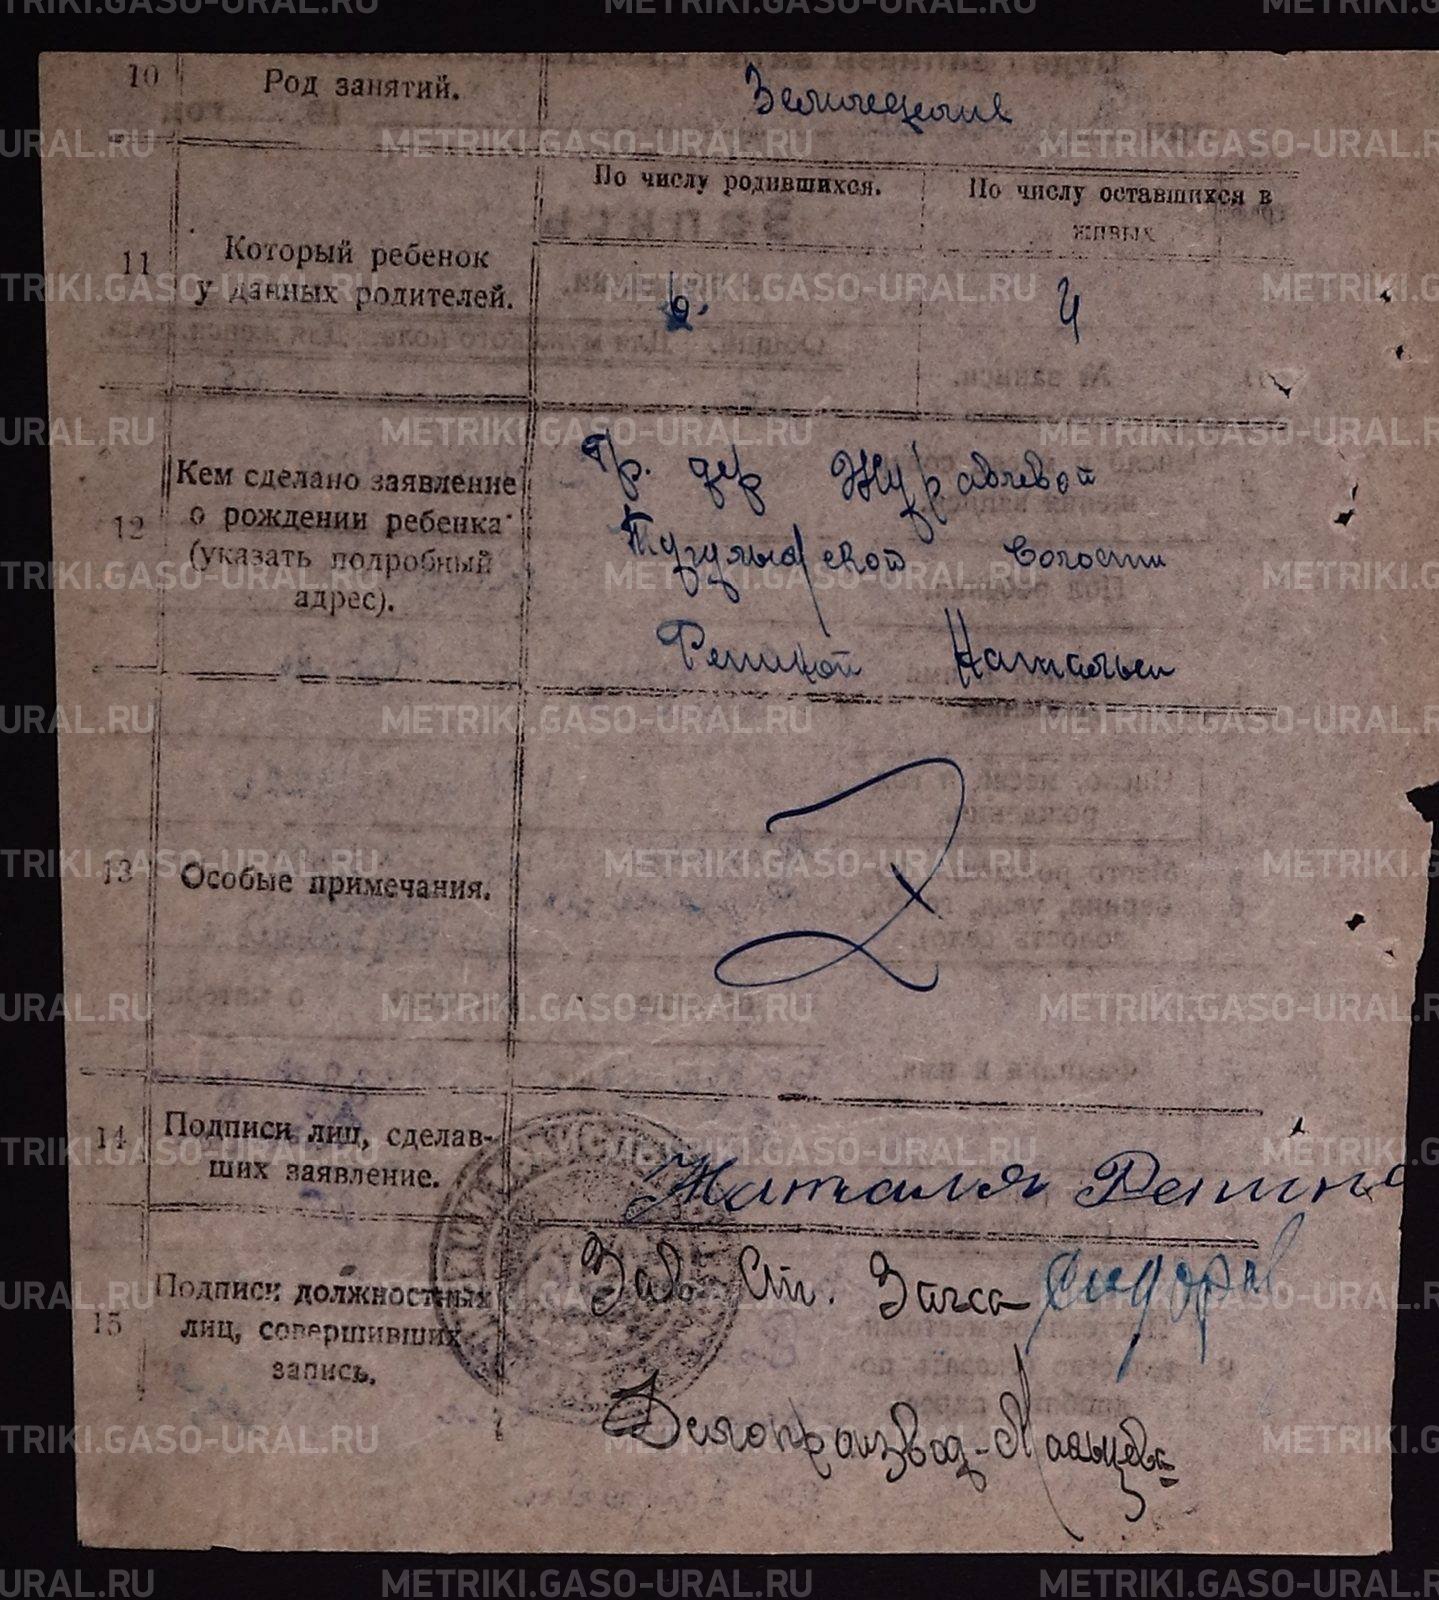 10 Род занятий. Земледелие
По числу родившихся. По числу оставшихся в живых
11 Который ребенок
у данных родителей. 6. 4
Кем сделано заявление
12 о рождении ребенка
(указать подробный
адрес).
Гр. дер Журавлевой
Тугулымской волости
Репиной Натальи
13 Особые примечания.
14 Подписи лиц, сделав-
ших заявление.
Наталя Репина
15 Подписи должностных
лиц, совершивших
запись.
Зав. Ст. Загса Сидоров
Делопроизвод-
METRIKI.GASO-URAL.RU